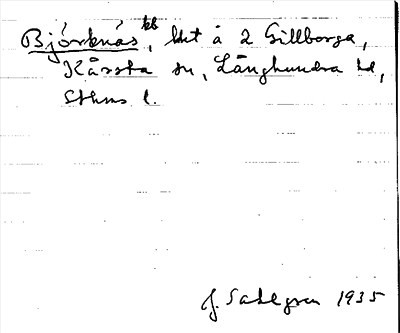 Björknäs kb, lht å 2 Gillberga,
Kårsta sn, Långhundra hd,
Sthms l.
J. Sahlgren 1935